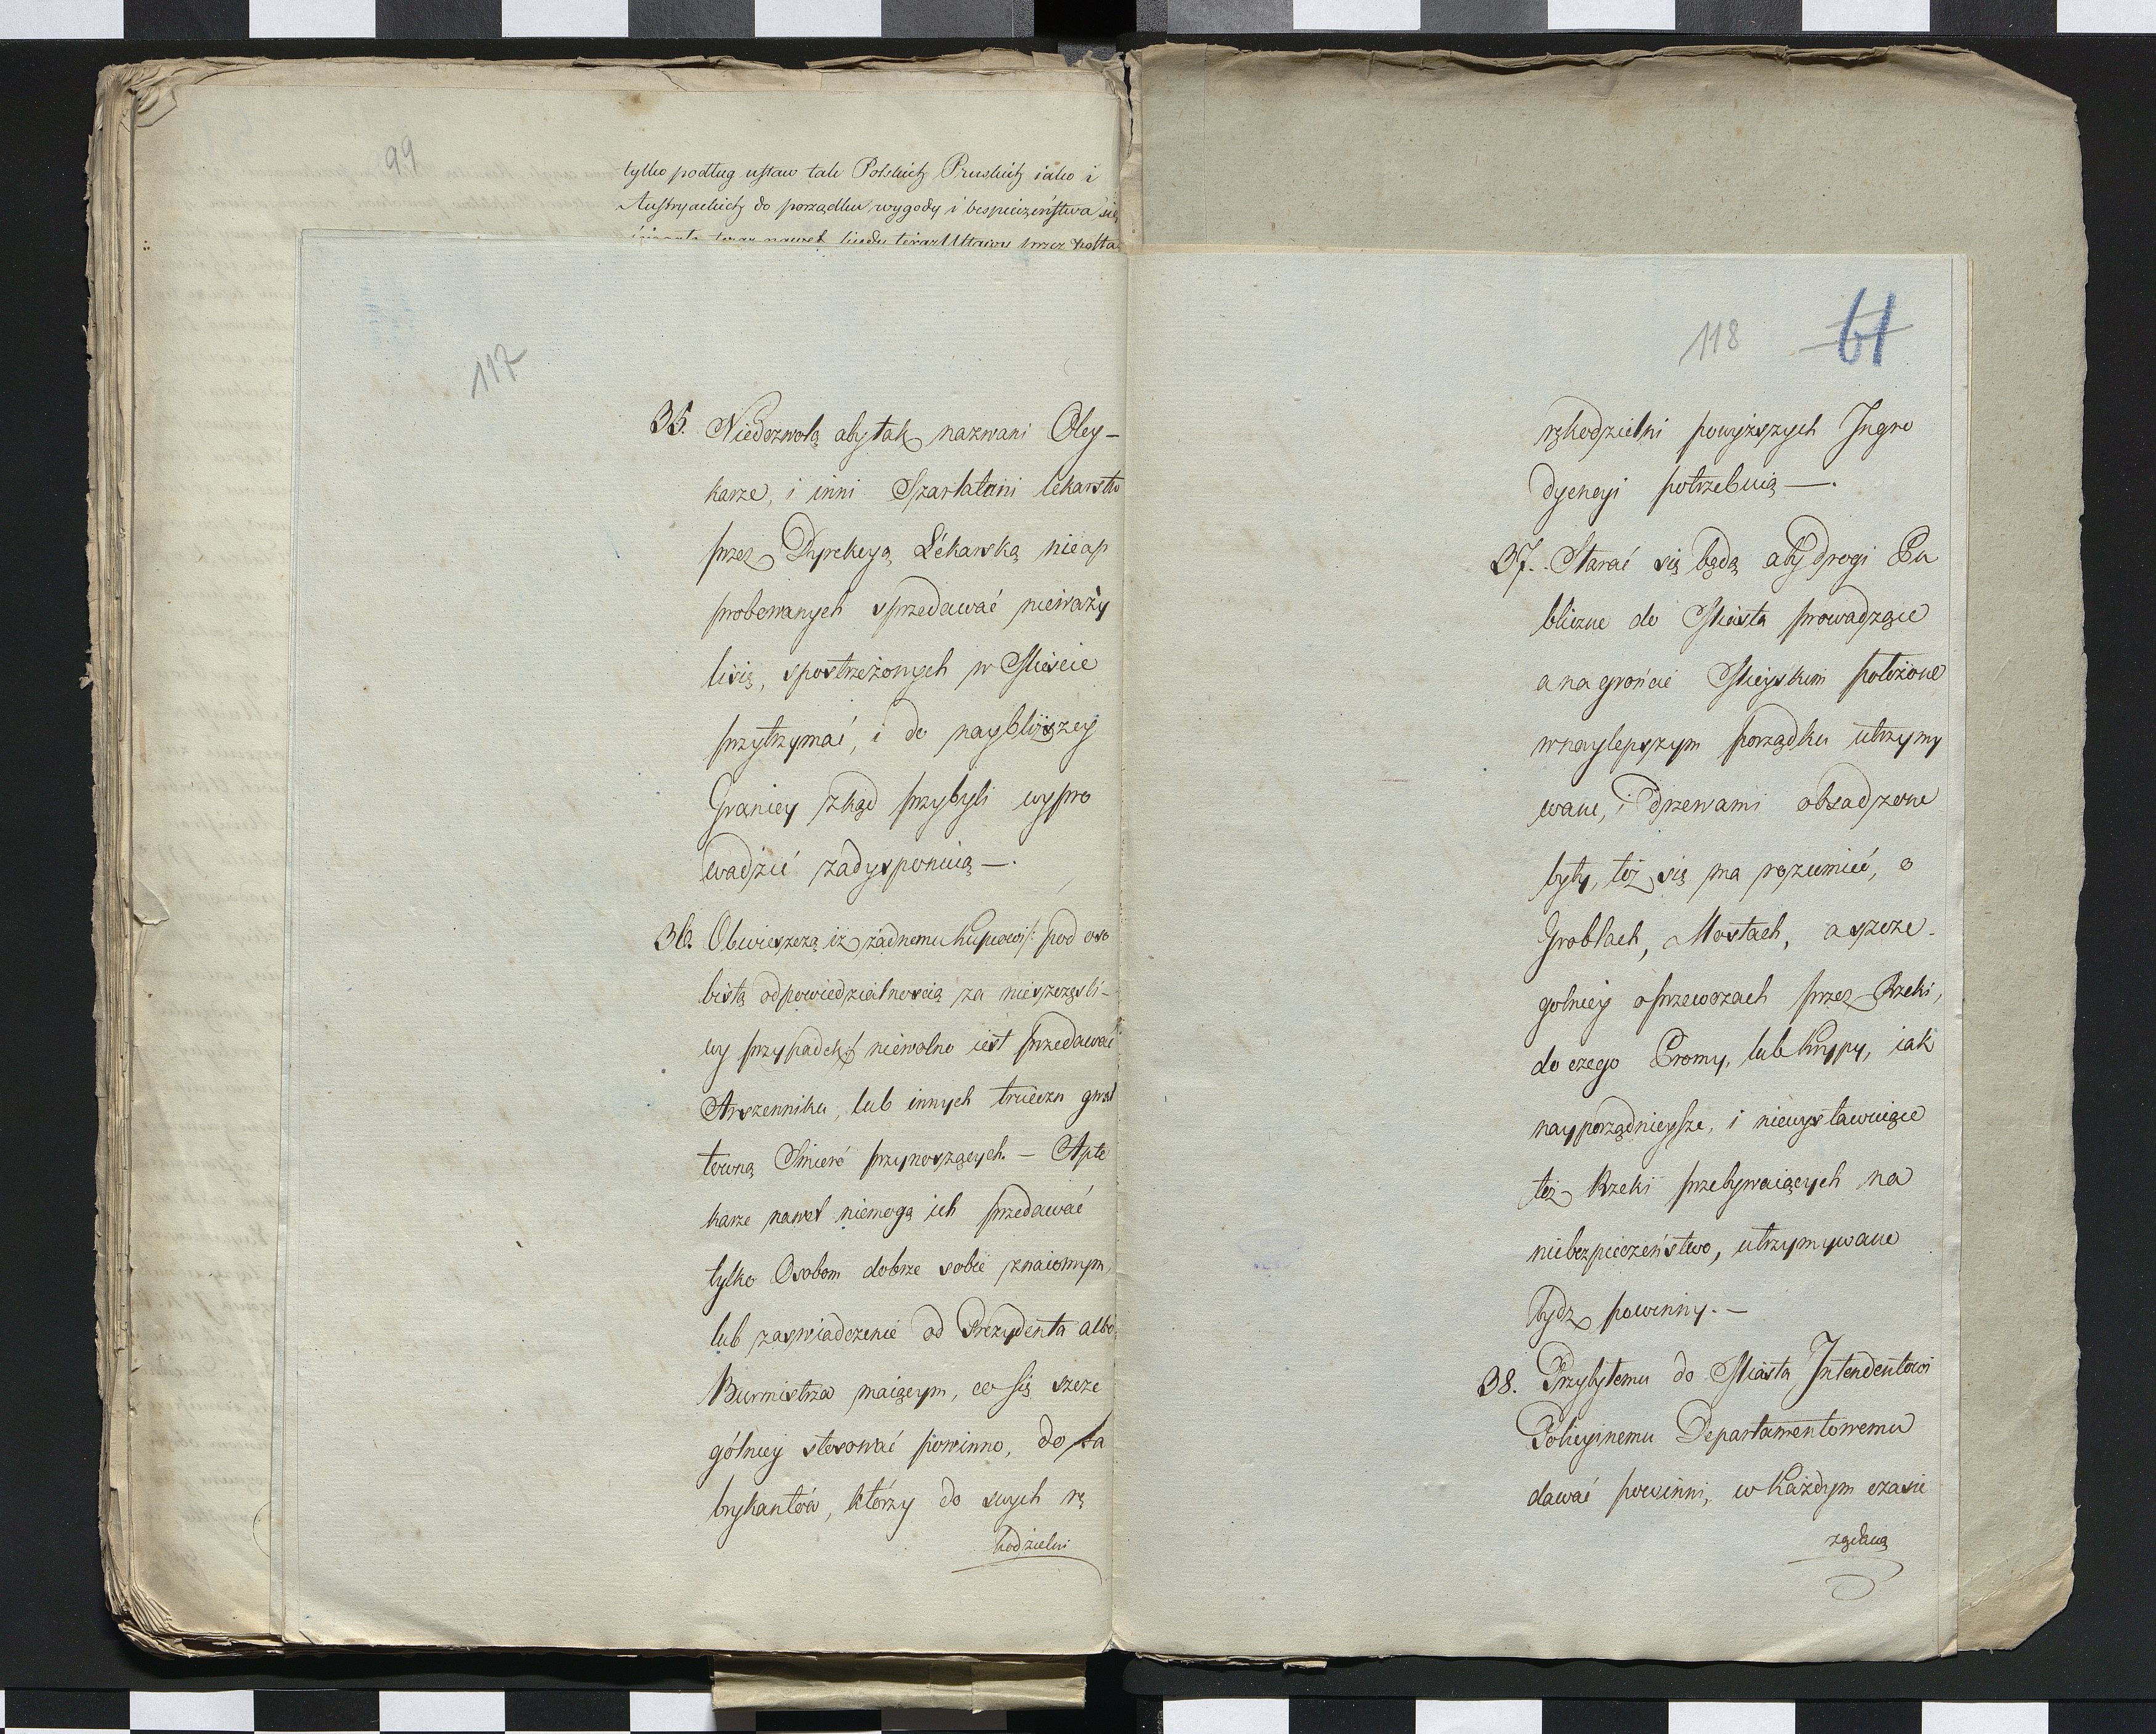 99
tylko podług ustaw tak Polskich Pruskich iako i
Austryackich do porządku wygody i bespieczeństwa się
117
35. Niedozwolą aby tak nazwani Oley-
karze, i inni Szarlatani lekarstw
przez Dyrekcyą Lékarską nieap
probowanych sprzedawać nieważy
lisię, spostrzeżonych w Mieście
przytrzymać, i do naybliższey
Granicy zkąd przybyli wypro
wadzić zadysponuią —.
36. Obwieszczą iż żadnemu Kupcowi /: pod oso
bistą odpowiedzialnoscią za nieszczęsli-
wy przypadek :/ niewolno iest przedawać
Arszenniku, lub innych truciżn gwał
towną Smierć przynoszących. — Apte
karze nawet niemogą ich przedawać
tylko Osobom dobrze sobie znaiomym,
lub zaswiadczenie od Prezydenta albo
Burmistrza maiącym, co się szcze
gólniey stosować powinno, do fa
brykantów, którzy do swych rę
kodzielni
118 61
rękodzielni powyższych Ingre
dyencyi potrzebuią —.
37. Starać się będą aby drogi Pu
bliczne do Miasta prowadzące
a na grońcie Mieyskim położone
w naylepszym porządku utrzymy
wane, i drzewami obsadzone
były, toż się ma rozumieć, o
Groblach, Mostach, a szcze-
golniey o przewozach przez Rzeki,
do czego Promy, lub Krypy, iak
nayporządnieysze, i niewystawuiące
też Rzeki przebywaiących na
niebezpieczeństwo, utrzymywane
bydz powinny. —
38. Przybyłemu do Miasta Intendentowi
Policyinemu Departamentowemu
dawać powinni, w Każdym czasie